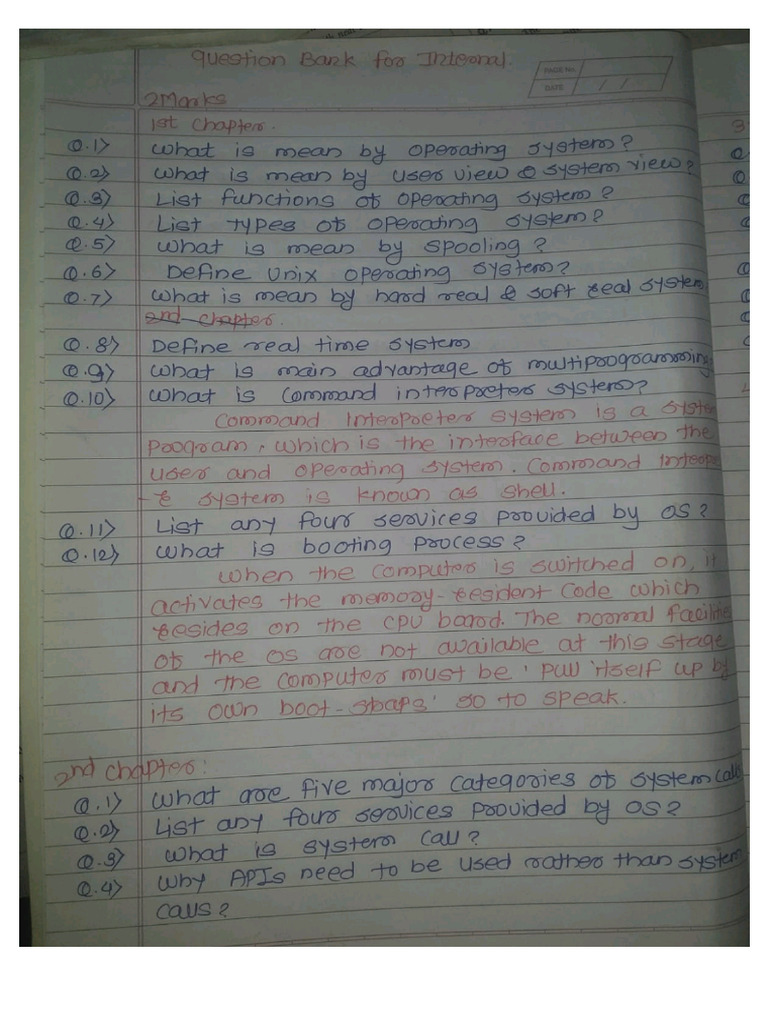 Question Bank for Internal.
PAGE No.
DATE / /
2Marks
1st Chapter.
Q.1> What is mean by operating system?
Q.2> What is mean by user view & system view?
Q.3> List functions of operating system?
Q.4> List types of operating system?
Q.5> What is mean by spooling?
Q.6> Define Unix operating system?
Q.7> What is mean by hard real & soft real system
2nd chapter.
Q.8> Define real time system
Q.9> What is main advantage of multiprogramming
Q.10> What is Command interpreter system?
Command Interpreter system is a syste
program, which is the interface between the
user and operating system. Command Interp
-r system is known as shell.
Q.11> List any four services provided by OS?
Q.12> What is booting process?
When the computer is switched on, it
activates the memory-resident code which
resides on the CPU board. The normal facilitie
of the OS are not available at this stage
and the computer must be 'pull itself up by
its own boot-straps' so to speak.
2nd chapter:
Q.1> What are five major categories of system calls
Q.2> List any four services provided by OS?
Q.3> What is system call?
Q.4> Why APIs need to be used rather than system
calls?